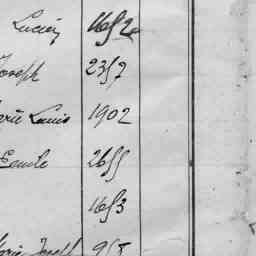 Lucien 1652
Joseph 2357
arie Louis 1902
Emile 2655
1653
Marie Joseph